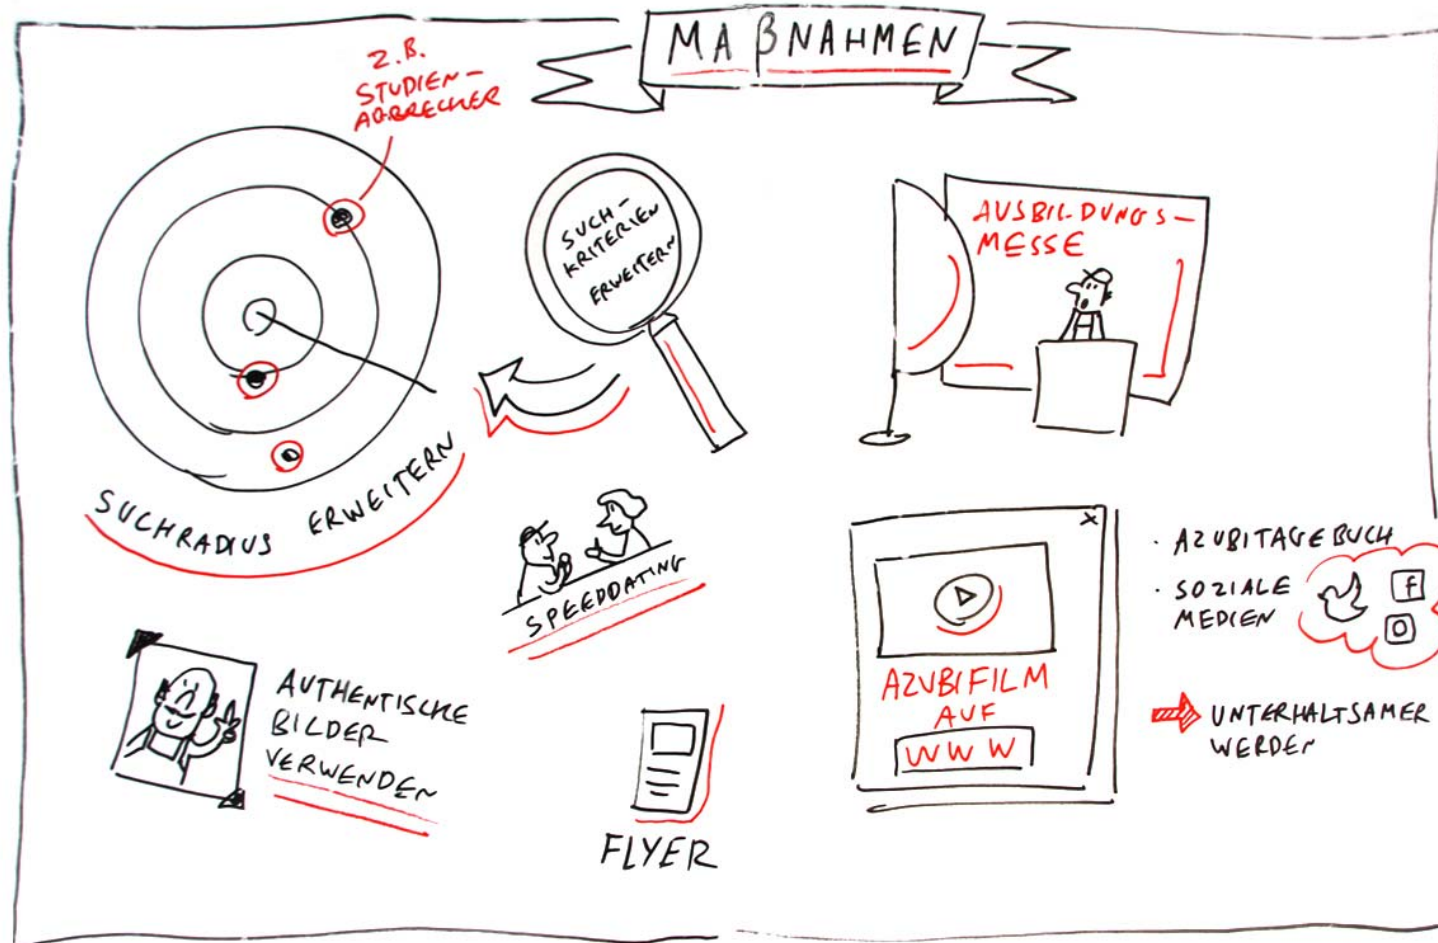 MAßNAHMEN
Z.B.
STUDIEN-
ABBRECHER
SUCH-
KRITERIEN
ERWEITERN
SUCHRADIUS ERWEITERN
AUSBILDUNGS-
MESSE
SPEEDDATING
AUTHENTISCHE
BILDER
VERWENDEN
FLYER
AZUBIFILM
AUF
WWW
· AZUBITAGEBUCH
· SOZIALE
MEDIEN
f
UNTERHALTSAMER
WERDEN